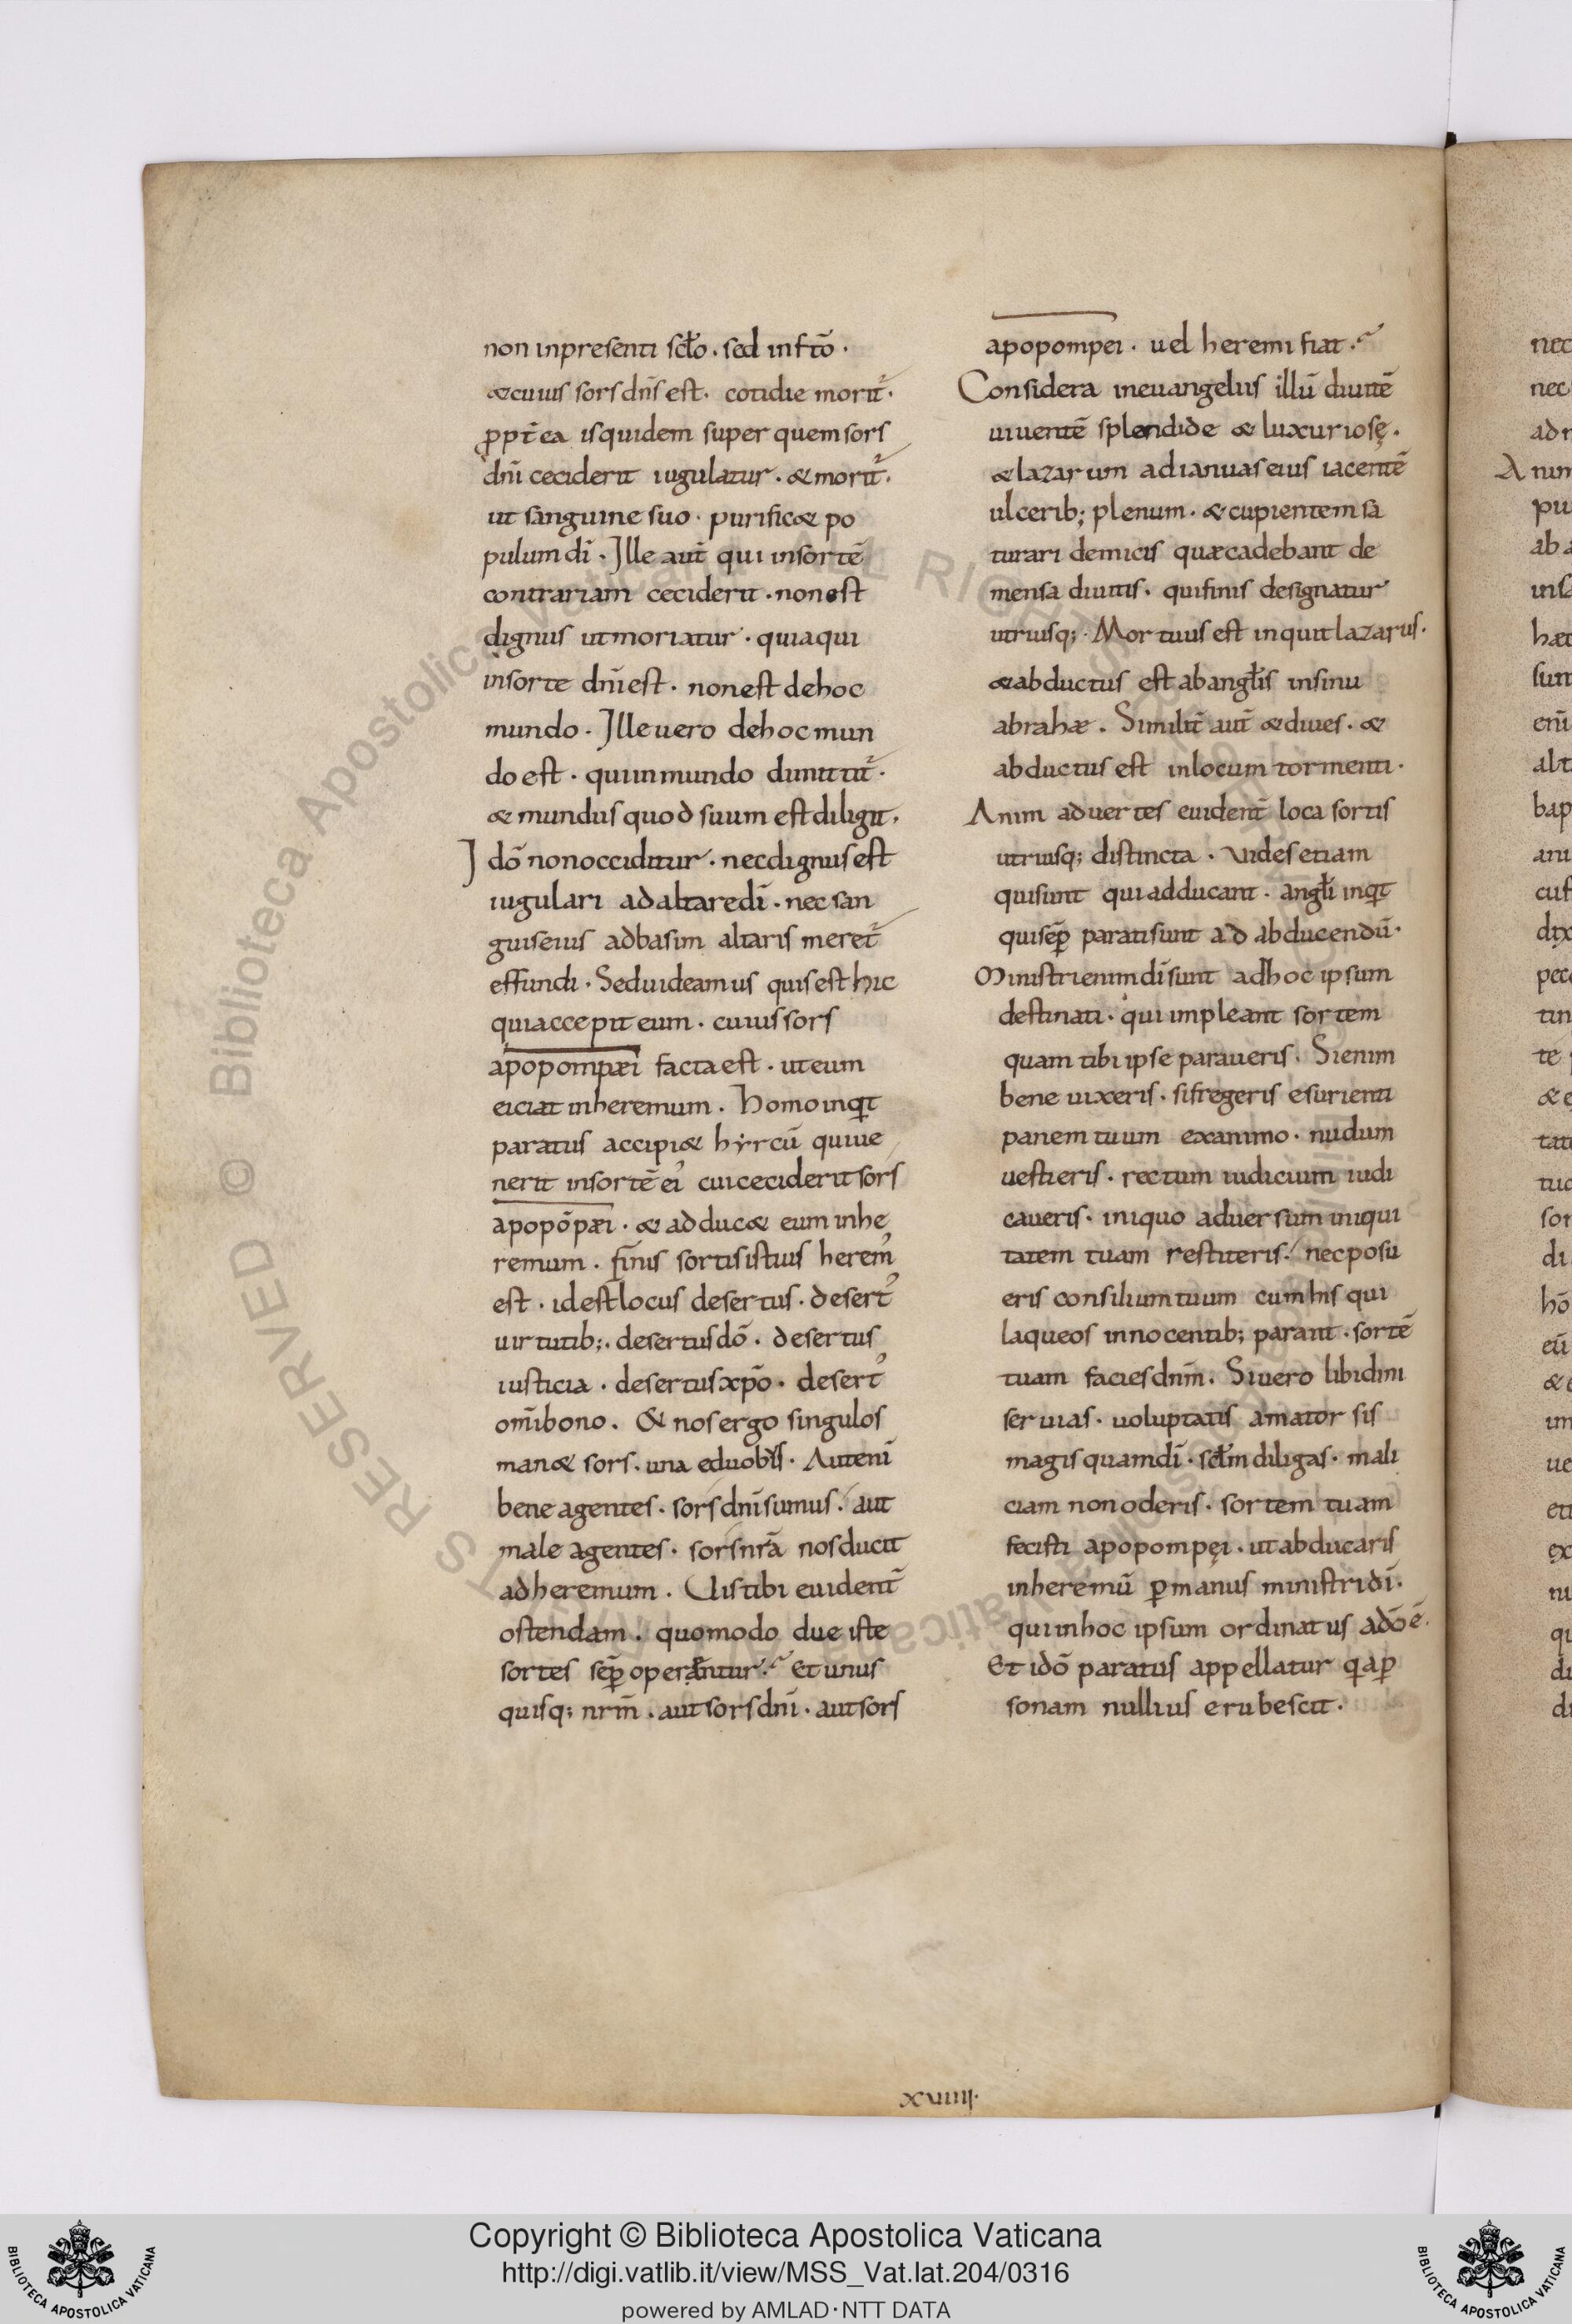 non inpresenti scło · sed inftō ·
&cuius sors dn̄s est · cotidie morit̄ ·
ꝓpt̄ea isquidem super quemsors
dn̄i ceciderit iugulatur · &morit̄ ·
ut sanguine suo · purific& po
pulum dī · Ille aut̄ qui insortē
contrariam ceciderit · nonest
dignus utmoriatur · quiaqui
insorte dn̄iest · nonest dehoc
mundo · Ille uero dehocmun
do est · quiinmundo
& mundus quod suum est diligit ·
Idō nonocciditur · necdignusest
iugulari adaltaredī · nec san
guiseius adbasim altaris meret̄
effundi · Seduideamus quisesthic
quiaccepit eum · cuiussors
apopompæi factaest · uteum
eiciat inheremum · Homoinq̄t
paratus accipi& hyrcū quiue
nerit insortē ei cuiceciderit sors
apopōpæi · & adduc& eum inhe
remum · finis sortisistius herem᾿
est · idestlocus desertus · desert᾿
uirtutib; · desertusdō · desertus
iusticia · desertusxp̄o · desert᾿
om̄ibono · & nosergo singulos
man& sors · una eduob; · Autenī
bene agentes · sorsdn̄isumus · aut
male agentes · sorsnr̄a nosducit
adheremum · Uistibi euident̄
ostendam · quomodo due iste
sortes sēp operantur · Et unus
quisq; nrm̄ · autsorsdn̄i · autsors
apopompei · uel heremi fiat ·
Considera ineuangeliis illū diuitē
uiuentē splendide & luxuriosę ·
&lazarum adianuaseius iacentē
ulcerib; plenum · &cupientemsa
turari demicis quæcadebant de
mensa diuitis · quifinis designatur
utriusq; · Mortuus est inquitlazarus ·
&abductus est abangłis insinu
abrahæ · Similit̄ aut̄ &diues · &
abductus est inlocum tormenti ·
Anim aduertes euident̄ loca sortis
utriusq; distincta · Uidesetiam
quisunt quiadducant · angłi inq̄t
quisēp paratisunt ad abducendū ·
Ministrienimdīsunt adhoc ipsum
destinati · qui impleant sortem
quam tibi ipse paraueris · Sienim
bene uixeris · sifregeris esurienti
panem tuum exanimo · nudum
uestieris · rectum iudicium iudi
caueris · iniquo aduersum iniqui
tatem tuam restiteris · necposu
eris consiliumtuum cumhis qui
laqueos innocentib; parant · sortē
tuam faciesdn̄m · Siuero libidini
seruias · uoluptatis amator sis
magis quamdī · scłm diligas · mali
ciam nonoderis · sortem tuam
fecisti apopompęi · utabducaris
inheremū ꝑmanus ministridī ·
quiinhoc ipsum ordinatus adō ē ·
Et idō paratus appellatur q̄aꝑ
sonam nullius erubescit ·
xuiiii ·
nec
nec
Copyright © Biblioteca Apostolica Vaticana
http://digi.vatlib.it/view/MSS_Vat.lat.204/0316
powered by AMLAD·NTT DATA
BIBLIOTECA APOSTOLICA VATICANA
BIBLIOTECA APOSTOLICA VATICANA